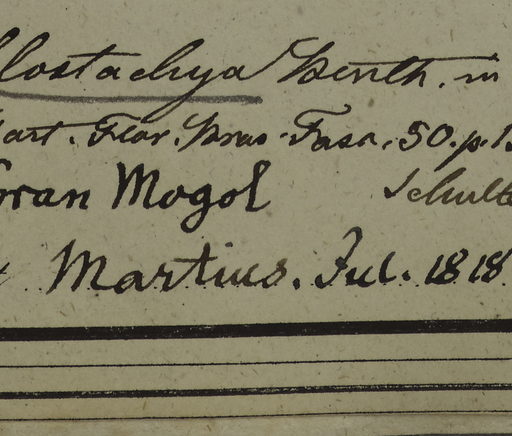 lostachya Benth. in
art. Flor. Bras. Fasc. 50. p. 1
Gran Mogol Schulte
Martius. Jul. 1818